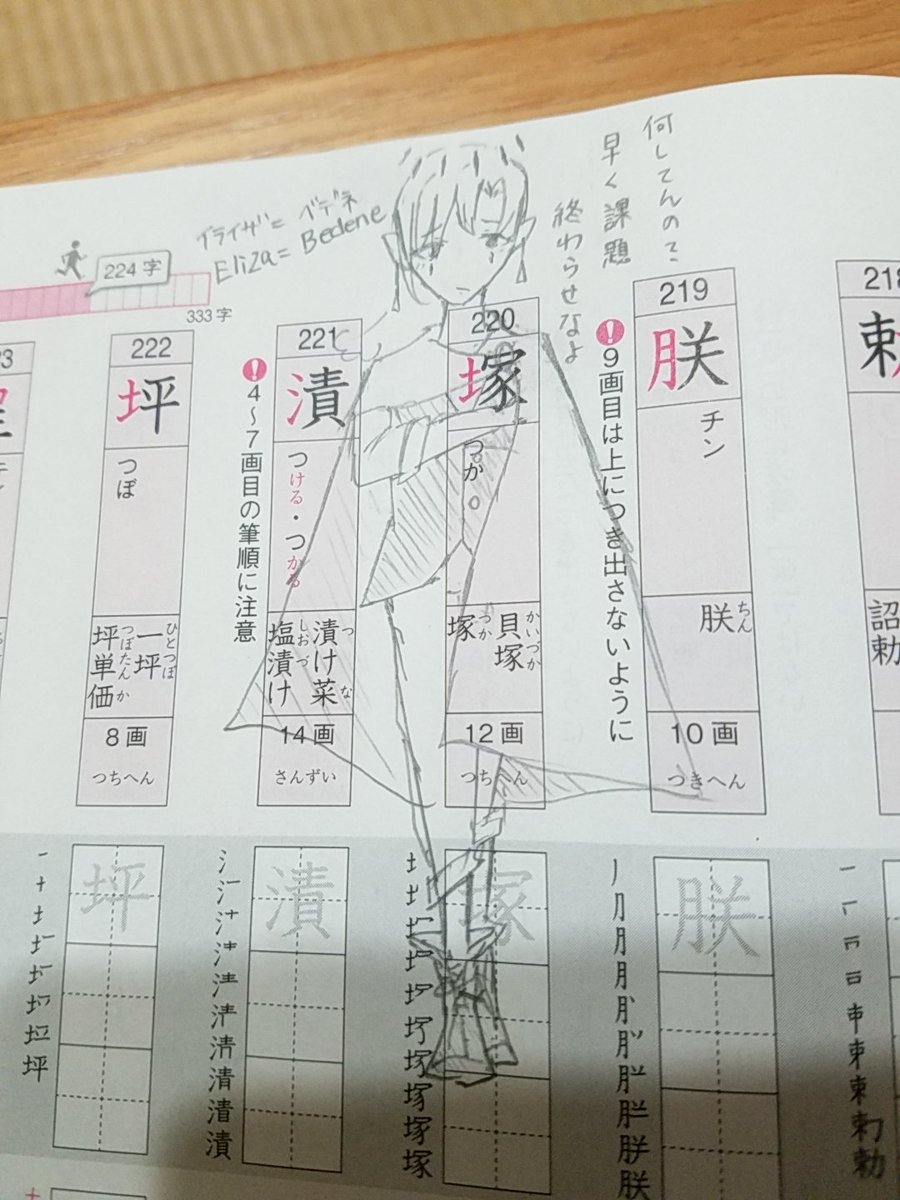 何してんの??
早く課題
終わらせなよ
イライザ=ベデネ
Eliza=Bedene
224字
333字
218
219
朕
チン
朕
ちん
10画
つきへん
❗9画目は上につき出さないように
220
塚
つか
貝塚
かいづか
塚
つか
12画
つちへん
221
漬
つける・つかる
漬け菜
つ な
塩漬け
しおづ
14画
さんずい
❗4〜7画目の筆順に注意
222
坪
つぼ
一坪
ひとつぼ
坪単価
つぼたんか
8画
つちへん
朕
塚
漬
坪